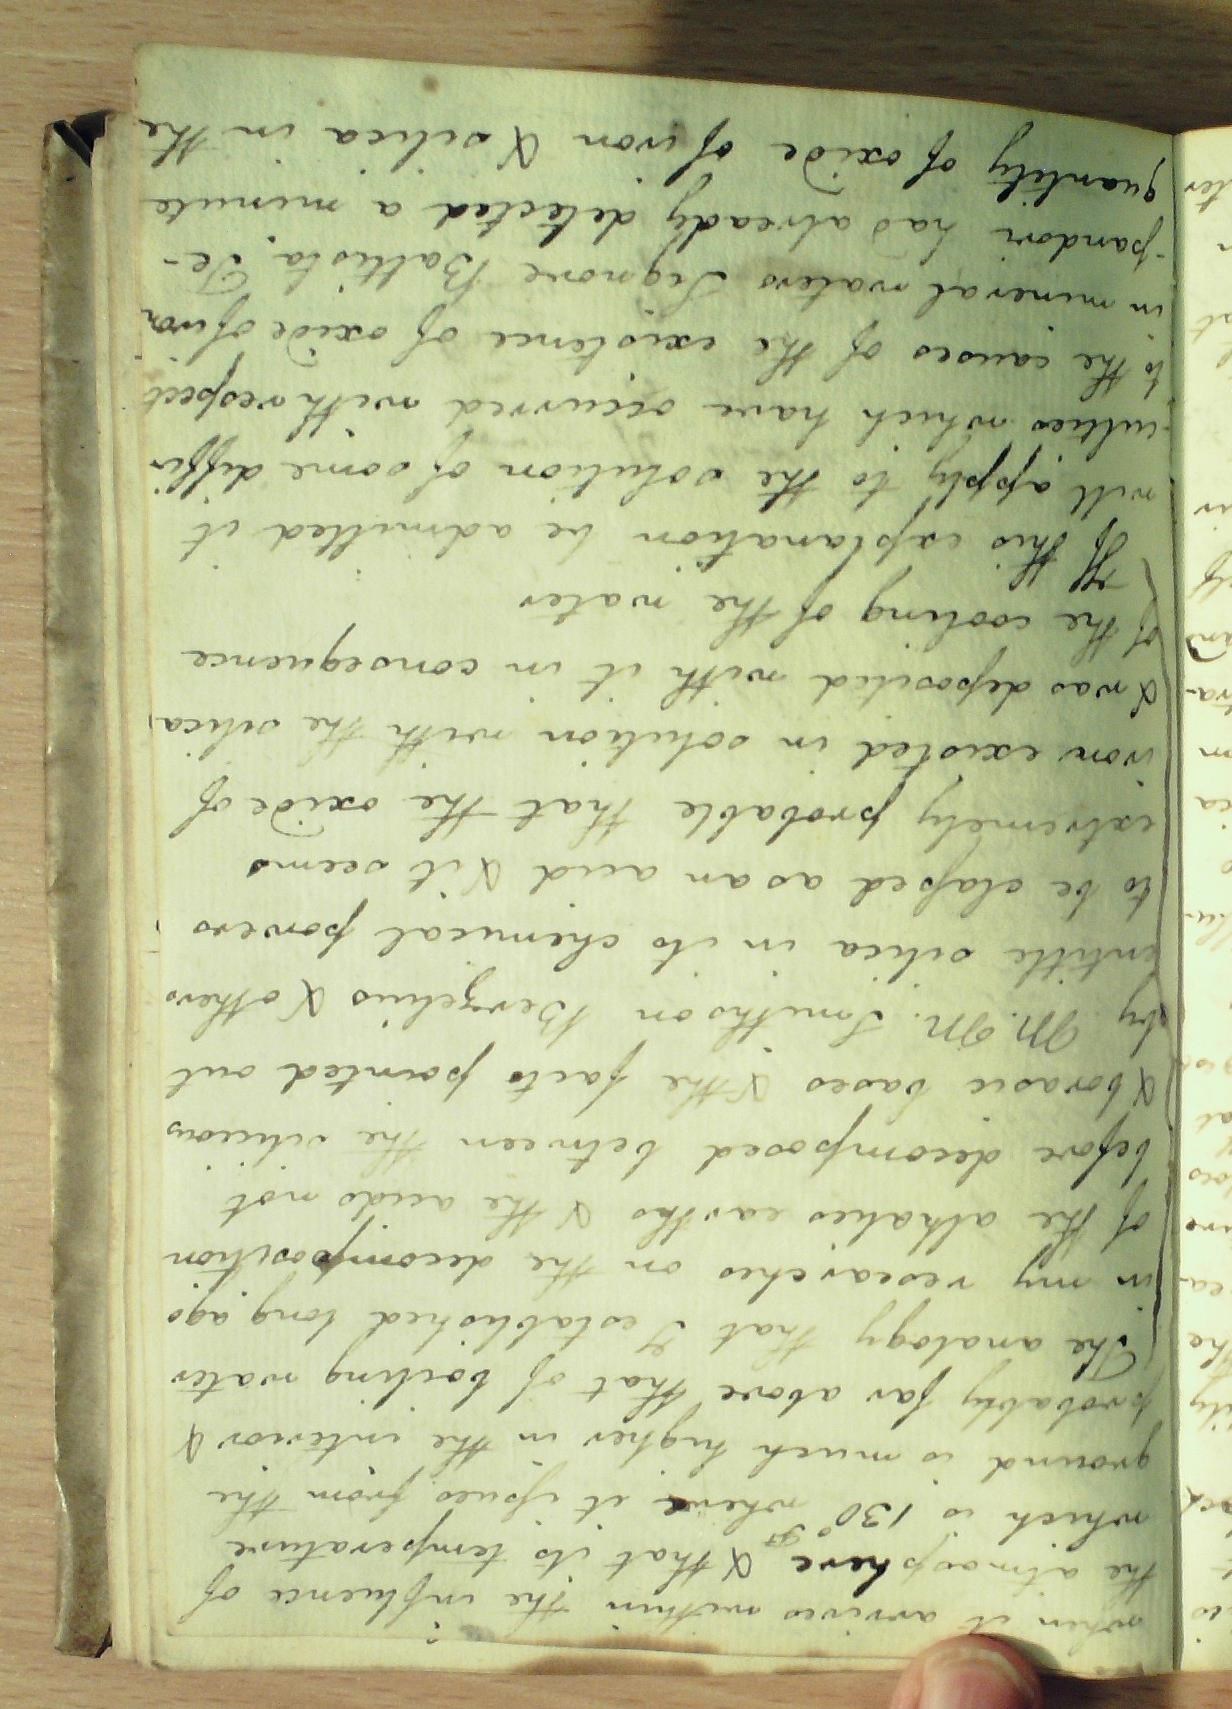 when it arrives within the influence of
the atmosphere & that its temperature
which is 130° F where it ifsues from the
ground is much higher in the interior &
probably far above that of boiling water
The analogy that I established long ago
in my researches on the decomposition
of the alkalies earths & the acids not
before decomposed between the silicious
& boracic bases & the facts pointed out
by M.M. Smithson Berzelius & others
entitle silica in its chemical powers
to be clafsed as an acid & it seems
extremely probable that the oxide of
iron existed in solution with the silica
& was deposited with it in consequence
of the cooling of the water
If this explanation be admitted it
will apply to the solution of some diffi-
-culties which have occurred with respect
to the causes of the existence of oxide of iron
in mineral waters Signore Battista Te-
-pandori had already detected a minute
quantity of oxide of iron & silica in the